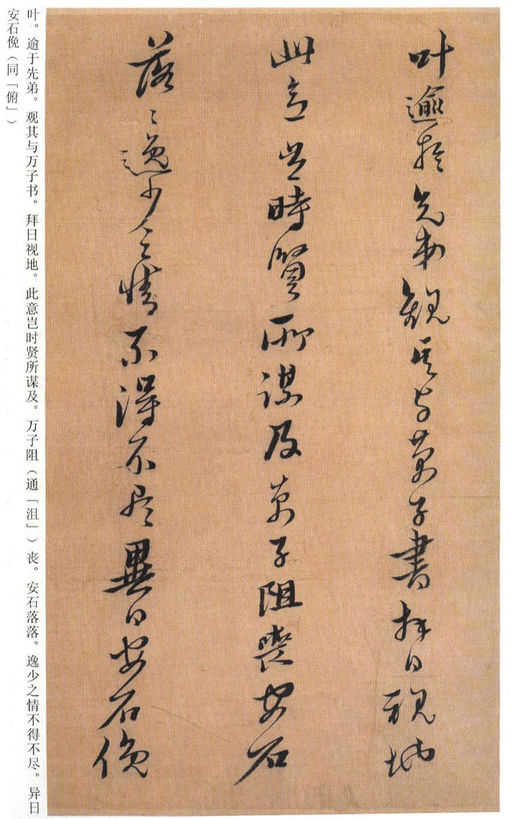 叶逾於先弟觀其与萬子書拜日視地
此意豈時賢所謀及萬子阻喪安石
落〻逸少之情不得不尽異日安石俛
叶。逾于先弟。观其与万子书。拜日视地。此意岂时贤所谋及。万子阻（通「沮」）丧。安石落落。逸少之情不得不尽。异日
安石俛（同「俯」）